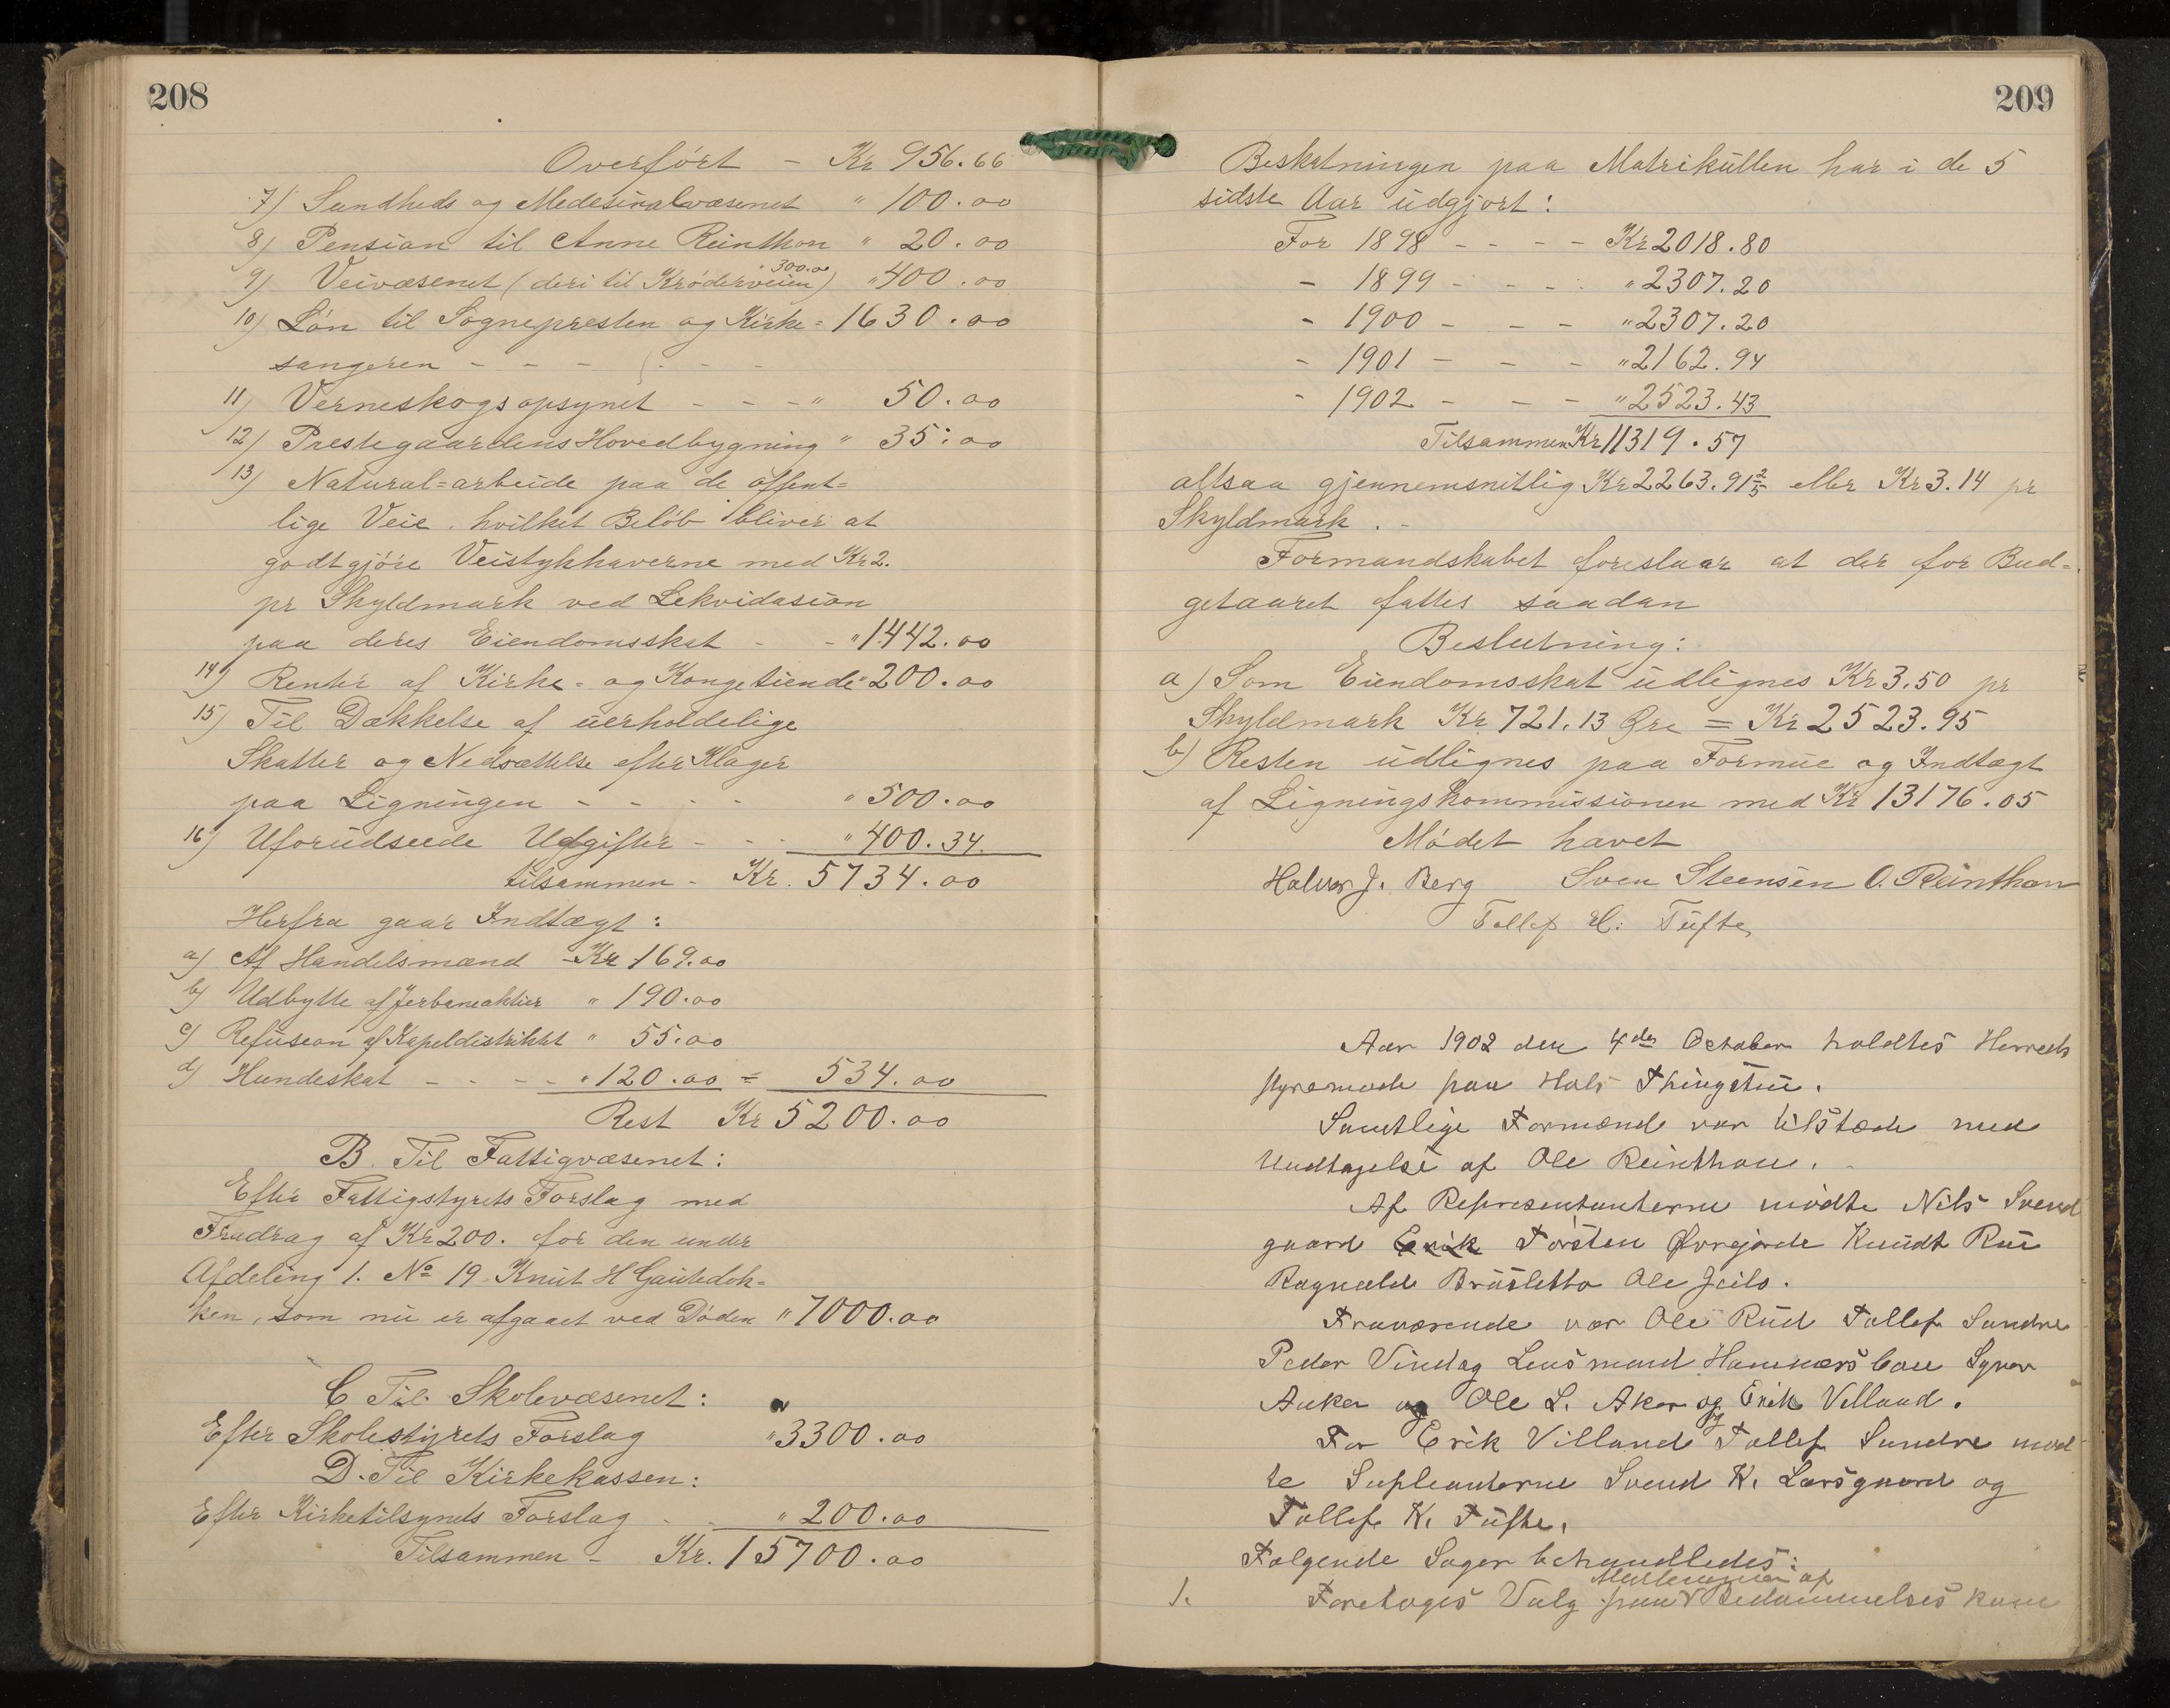 208
Overført - Kr 956.66
7) Sundheds og Medesinalvæsenet " 100.00
8) Pension til Anne Reinthon " 20.00
" 300.00
9) Veivæsenet (deri til Krøderveien) " 400.00
10) Løn til Sognepresten og Kirke= 1630.00
sangeren - - - - -
11) Verneskogsopsynet - - - " 50.00
12) Prestegaardens Hovedbygning " 35.00
13) Natural=arbeide paa de offent=
lige Veie, hvilket Beløb bliver at
godtgjøre Veistykhaverne med Kr 2.
pr Skyldmark ved Lekvidasion
paa deres Eiendomsskat - - " 1442.00
14) Renter af Kirke- og Kongetiende " 200.00
15) Til Dækkelse af uerholdelige
Skatter og Nedsættelse efter Klager
paa Ligningen - - - - " 500.00
16) Uforudseede Udgifter - - - " 400.34
tilsammen - Kr. 5734.00
Herfra gaar Indtægt:
a) Af Handelsmænd - Kr 169.00
b) Udbytte af Jerbaneaktier " 190.00
c) Refusion af Kapeldistriktet " 55.00
d) Hundeskat - - - - " 120.00 = 534.00
Rest Kr 5200.00
B. Til Fattigvæsenet:
Efter Fattigstyrets Forslag med
Fradrag af Kr 200. for den under
Afdeling 1. No 19. Knut H Gautedok=
ken, som nu er afgaaet ved Døden " 7000.00
C Til Skolevæsenet:
Efter Skolestyrets Forslag " 3300.00
D. Til Kirkekassen:
Efter Kirketilsynets Forslag - - " 200.00
Tilsammen - Kr. 15700.00
209
Beskatningen paa Matrikullen har i de 5
sidste Aar udgjort:
For 1898 - - - - Kr 2018.80
- 1899 - - - - " 2307.20
- 1900 - - - " 2307.20
- 1901 - - - " 2162.94
- 1902 - - - " 2523.43
Tilsammen Kr 11319.57
altsaa gjennemsnitlig Kr 2263.91 2/5 eller Kr 3.14 pr
Skyldmark. -
Formandskabet foreslaar at der for Bud=
getaaret fattes saadan
Beslutning:
a) Som Eiendomsskat udlignes Kr 3.50 pr
Skyldmark Kr 721.13 Øre = Kr 2523.95
b) Resten udlignes paa Formue og Indtægt
af Ligningskommissionen med Kr 13176.05
Mødet hævet
Halvor J. Berg Sven Steensen O. Reinthon
Tollef H. Tufte
Aar 1902 den 4de October holdtes Herreds
styremøde paa Hols Thingstue.
Samtlige Formænd var tilstæde med
Undtagelse af Ole Reinthon. -
Af Representanterne mødte Nils Svend
gaard Erik Torsten Øvrejorde Knudt Rue
Ragnvald Brusletto Ole Jeilo.
Fraværende var Ole Rud Tollef Sundre
Peder Vindag Lensmand Hammersboen Syver
Anker og Ole L. Aker og Erik Villand.
For Erik Villand og Tollef Sundre mød
te Supleanterne Svend K. Larsgaard og
Tollef K. Tufte.
Følgende Sager behandledes:
Medlemmer af
1. Foretoges Valg paa Bedømmelses kom